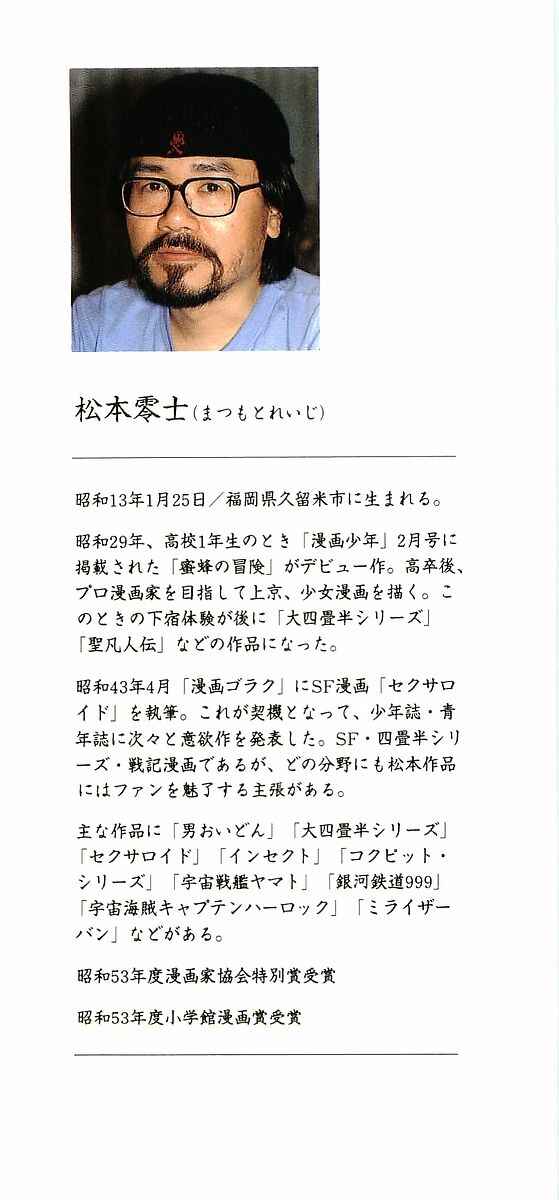 松本零士(まつもとれいじ)
昭和13年1月25日／福岡県久留米市に生まれる。
昭和29年、高校1年生のとき「漫画少年」2月号に
掲載された「蜜蜂の冒険」がデビュー作。高卒後、
プロ漫画家を目指して上京、少女漫画を描く。こ
のときの下宿体験が後に「大四畳半シリーズ」
「聖凡人伝」などの作品になった。
昭和43年4月「漫画ゴラク」にSF漫画「セクサロ
イド」を執筆。これが契機となって、少年誌・青
年誌に次々と意欲作を発表した。SF・四畳半シリ
ーズ・戦記漫画であるが、どの分野にも松本作品
にはファンを魅了する主張がある。
主な作品に「男おいどん」「大四畳半シリーズ」
「セクサロイド」「インセクト」「コクピット・
シリーズ」「宇宙戦艦ヤマト」「銀河鉄道999」
「宇宙海賊キャプテンハーロック」「ミライザー
バン」などがある。
昭和53年度漫画家協会特別賞受賞
昭和53年度小学館漫画賞受賞